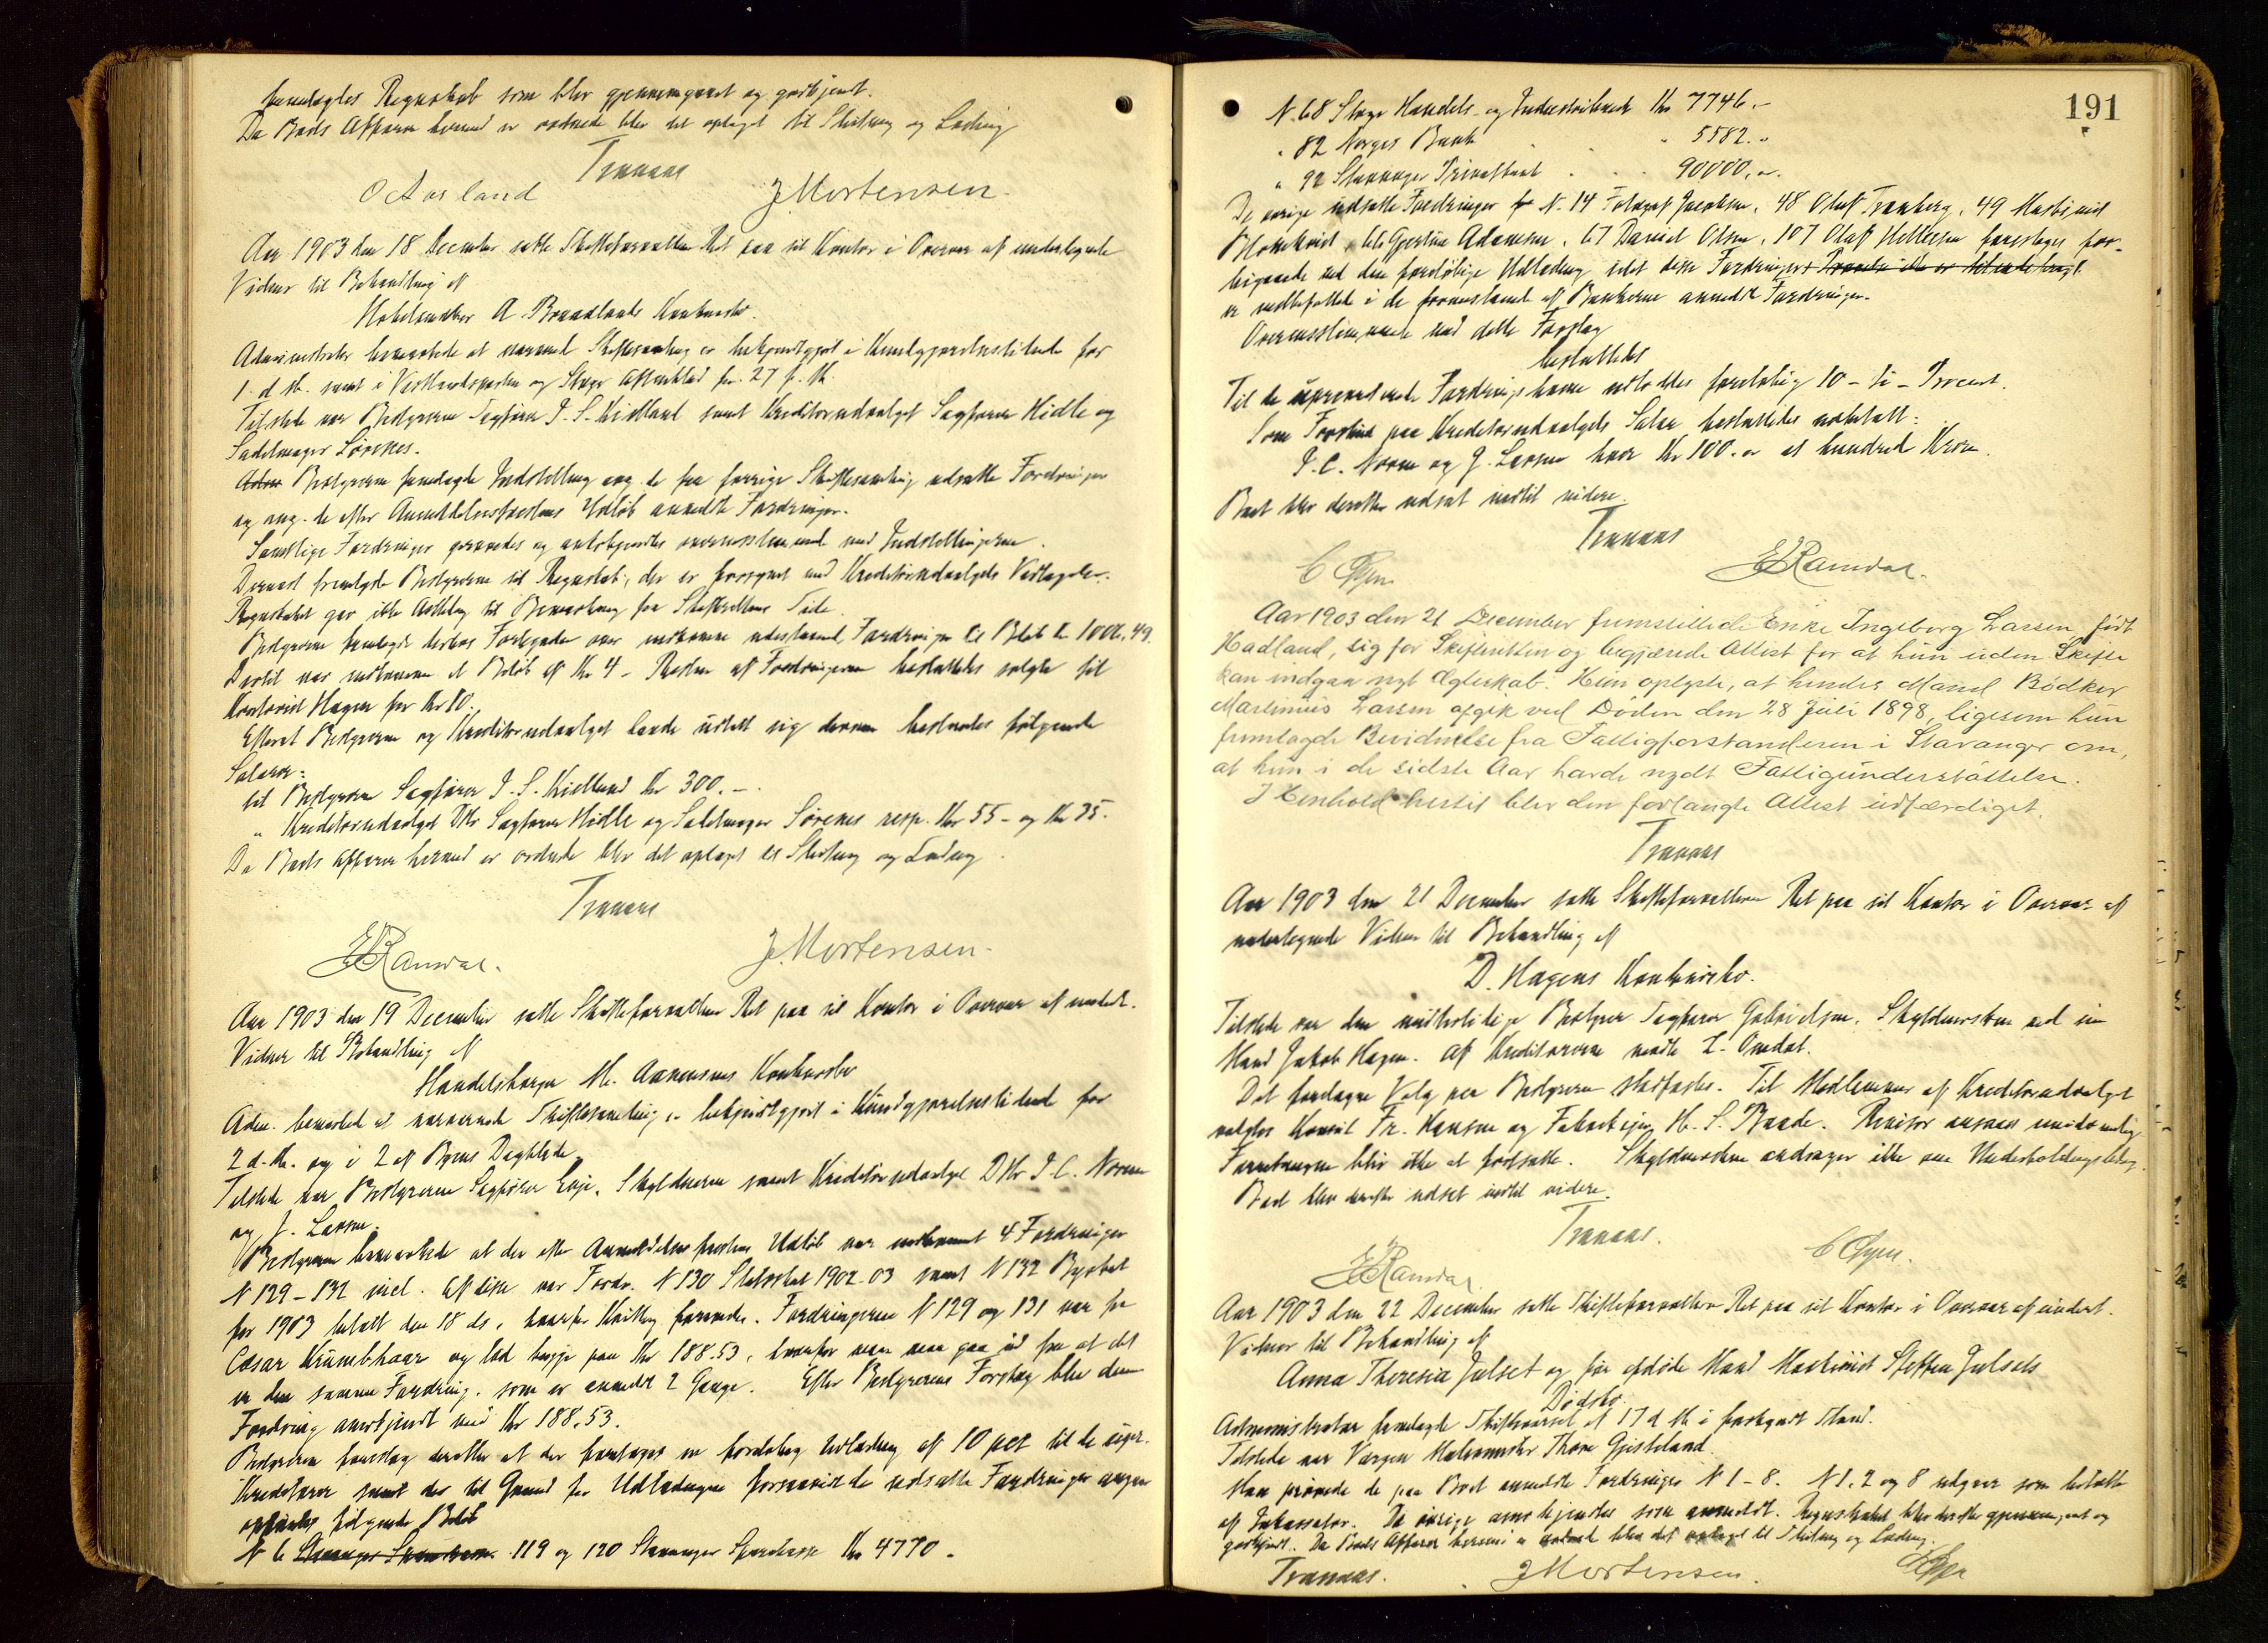 fremlagtes Regnskab som blev gjennemgaaet og godkjendt.
Da Boets Affærer hermed er ordnede blev det optaget til Slutning og Lodning
Tranaas
O Aasland J Mortensen
Aar 1903 den 18 December satte Skifteforvalteren Ret paa sit Kontor i Overvær af undertegnede
Vidner til Behandling af
A. Braadlands Konkursbo.
Administrator bemærkede at nærværende Skiftesamling er bekjendtgjort i Kundgjørelsestidende for
1. d. M. samt i Vestlandsposten og Stvgr Aftenblad for 27 f. M.
Tilstede var Bestyreren Sagfører J. S. Kielland samt Kreditorudvalget Sagfører Hidle og
Sadelmager Sørenes.
Bestyreren fremlagde Indstilling ang. de fra forrige Skiftesamling udsatte Fordringer
og ang. de efter Anmeldelsesfristens Udløb anmeldte Fordringer.
Samtlige Fordringer prøvedes og antokjendtes overensstemmende med Indstillingerne.
Dernæst fremlagde Bestyreren sit Regnskab, der er forsynet med Kreditorudvalgets Vedtagelse.
Regnskabet gav ikke Anledning til Bemærkning fra Skifterettens Side.
Bestyreren fremlagde derhos Fortegnelse over udestaaende Fordringer til Beløb Kr 1002,49.
Dertil var indkommet et Beløb af Kr 4 - Resten af Fordringerne besluttedes solgte til
Hagen for Kr 10.
Efterat Bestyreren og Kreditorudvalget havde udtalt sig derom bestemtes følgende
Salærer:
til Bestyreren Sagfører J. S. Kielland Kr 300.-
" Kreditorudvalget DHr Sagfører Hidle og Sadelmager Sørenes resp. Kr 55 - og Kr 35.
Da Boets Affærer hermed er ordnede blev det optaget til Slutning og Lodning
Tranaas
E Ramdal. J Mortensen
Aar 1903 den 19 December satte Skifteforvalteren Ret paa sit Kontor i Overvær af undert.
Vidner til Behandling af
Handelsborger M. Aanensens Konkursbo
Adm. bemærked at nærværende Skiftesamling er bekjendtgjort i Kundgjørelsestidende for
2 d. M. og i 2 af Byens Dagblade.
Tilstede var Bestyreren Sagfører Eoje, Skyldneren samt Kreditorudvalget DHr J. C. Noren
og J. Larsen.
Bestyreren bemærkede at der efter Anmeldelsesfristens Udløb var indkommet 4 Fordringer
N 129 - 132 incl. Af disse var Fordr. N 130 Statsskat 1902-03 samt N 132 Byskat
for 1903 betalt den 18 ds, hvorfor Kvittering forevistes. Fordringerne N 129 og 131 var fra
Cæsar Krümbhaar og lød begge paa Kr 188.53, hvorfor man maa gaa ud fra at det
er den samme Fordring, som er anmeldt 2 Gange. Efter Bestyrerens Forslag blev den
Fordring anerkjendt med Kr 188.53.
Bestyreren foreslog derefter at der foretages en foreløbig Udlodning af 10 pct til de uprior.
Kreditorer samt der til Grund for Udlodningen forsaavidt de udsatte Fordringer angaar
opføres følgende Beløb
N 6 119 og 120 Stavanger Sparekasse Kr 4770.-
191
N. 68 Stvgr Handels- og Industribank Kr 7746.-
" 82 Norges Bank " 5582.-
" 92 Stavanger Privatbank " 90000.-
De øvrige udsatte Fordringer N. 14 Fotograf Jacobsen, 48 Oluf Tranberg, 49 Maskinist
Blomkvist, Gjertine Adamsen, 67 Daniel Olsen, 107 Olaf Hellesen foresloges for-
bigaaede ved den foreløbige Udlodning idet disse Fordringer
er indbefattede i de foranstaaende af Bankerne anmeldte Fordringer.
Overensstemmende med dette Forslag
besluttedes
Til de uprioriterede Fordringshavere udloddes foreløbig 10 - ti - Procent.
Som Forskud paa Kreditorudvalgets Salær besluttedes udbetalt:
J. C. Noren og J. Larsen hver Kr 100.- et hundred Kroner.
Boet blev derefter udsat indtil videre.
Tranaas
E Ramdal.
Aar 1903 den 21 December fremstillede Enke Ingeborg Larsen, født
Hadland, sig for Skifteretten og begjærede Attest for at hun uden Skifte
kan indgaa nyt Ægteskab. Hun oplyste, at hendes Mand Bødker
Martinius Larsen afgik ved Døden den 28 Juli 1898, ligesom hun
fremlagde Bevidnelse fra Fattigforstanderen i Stavanger om,
at hun i de sidste Aar havde nydt Fattigunderstøttelse.
I Henhold hertil blev den forlangte Attest udfærdiget.
Tranaas
Aar 1903 den 21 December satte Skifteforvalteren Ret paa sit Kontor i Overvær af
undertegnede Vidner til Behandling af
D. Hagens Konkursbo.
Tilstede var den midlertidige Bestyrer Sagfører Gabrielsen, Skyldnersken ved sin
Mand Jakob Hagen. Af Kreditorerne mødte L. Omdal.
Det foretagne Valg paa Bestyreren stadfæstes. Til Medlemmer af Kreditorudvalget
valgtes Konsul Fr. Hansen og Fabrikeier H. S. Baade. Revisor ansaaes unødvendig
Forretningen blir ikke at fortsætte. Skyldnersken andrager ikke om Underholdningsbidrag.
Boet blev derefter udsat indtil videre.
Tranaas.
E Ramdal
Aar 1903 den 22 December satte Skifteforvalteren Ret paa sit Kontor i Overvær af undert.
Vidner til Behandling af
Anna Theresia Julset og før afdøde Mand Maskinist Steffen Julsets
Dødsbo.
Administrator fremlagde Skiftevarsel af 17 d. M. i forkyndt Stand.
Tilstede var Værgen Malermester Thore Gjesteland.
Man prøvede de paa Boet anmeldte Fordringer N 1 - 8. N 1, 2 og 8 udgaar som betalte
af Inkassator. De øvrige anerkjendtes som anmeldt. Regnskabet blev derefter gjennemgaaet og
godkjendt. Da Boets Affærer hermed er ordnede blev det optaget til Slutning og Lodning.
Tranaas. J Mortensen.